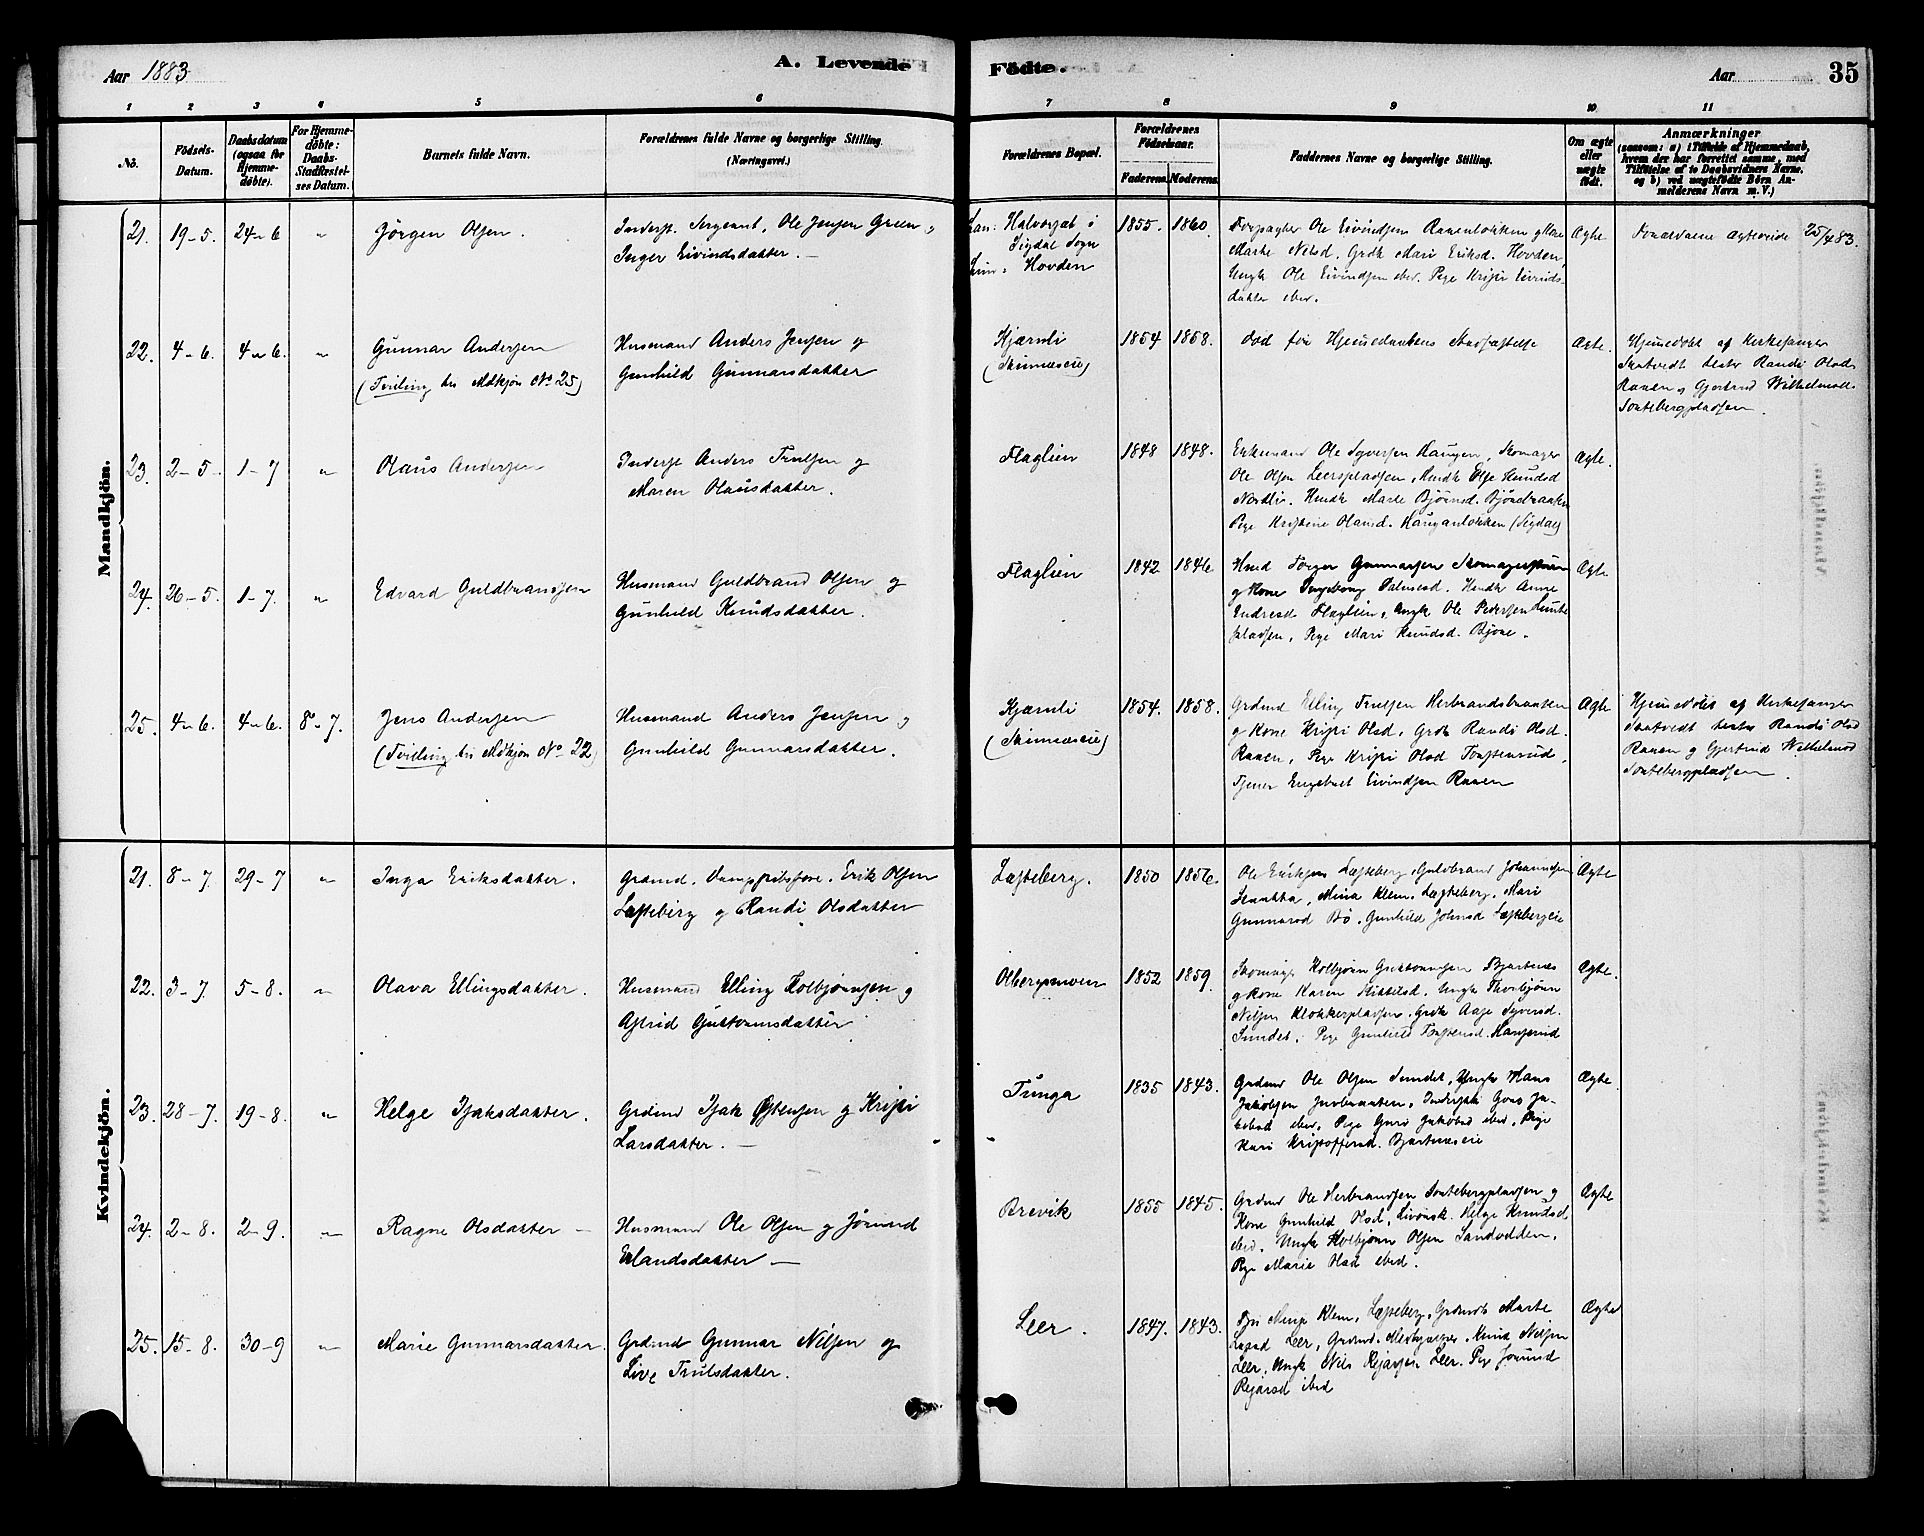 Aar 1883
A. Levende Födte.
Aar
35
1 2 3 4 5 6 7 8 9 10 11
No.
Födsels-Datum.
Daabsdatum (ogsaa for Hjemme-døbte).
For Hjemme-døbte: Daabs-Stadfæstel-ses Datum.
Barnets fulde Navn.
Forældrenes fulde Navne og borgerlige Stilling. (Næringsvei.)
Forældrenes Bopæl.
Forældrenes Födselsaar.
Faderens. Moderens.
Faddernes Navne og borgerlige Stilling.
Om ægte eller uægte født.
Anmærkninger
(saasom: a) i Tilfælde af Hjemmedaab, hvem der har forrettet samme, med Tilföielse af to Daabsvidners Navne, og b) ved uægtefödte Börn An-melderens Navn m. V.)
Mandkjön.
21. 19-5. 24-6 " Jörgen Olsen.
Inderst. Sergeant, Ole Jensen Green og
Inger Eivindsdatter. —
Halvorsat i
Sigdal Sogn
Hovden
1855. 1860.
Ole Eivindsen Raaenlökken og Kone
Marthe Nilsd. Grdk Mari Eriksd. Hovden,
Ungk Ole Eivindsen ibd. Pige Kristi Eivinds-
datter ibd.
Ægte
Forældrene Ægteviede 25/4 83.
22. 4-6. 4-6. " Gunnar Andersen
(Tvilling til Mdkjön No. 25)
Husmand Anders Jensen og
Gunhild Gunnarsdatter
Kjærnli
(Skinneseie)
1854 1858.
död før Hjemmedaabens Stadfæstelse
Ægte.
Hjemmedöbt af Kirkesanger
Skatvedt Randi Olsd.
Raaen og Gjertrud Wilhelmsd.
Toutebergpladsen.
23. 2-5. 1-7 " Olaus Andersen
Inderst Anders Trulsen og
Maren Olausdatter.
Flaglien
1848 1848.
Enkemand Ole Syversen Haugen, Skomager
Ole Olsen Leerspladsen, Husdk Else Knudsd
Nordli. Husdk Marte Björnsd. Björnbraaten
Pige Kristine Olausd. Hauganlökken (Sigdal)
Ægte.
24. 26-5. 1-7. " Edvard Guldbrandsen
Husmand Guldbrand Olsen og
Gunhild Knudsdatter.
Flaglien
1842 1846
Husd Torger Gunnarsen
og Kone Ingeborg Husdk Anne
Endresd Flaglien, Ungk Ole Pedersen
pladsen, Pige Mari Knudsd. Björe.
Ægte
25. 4-6. 4-6. 8-7. Jens Andersen
(Tvilling til Mdkjön No. 22)
Husmand Anders Jensen og
Gunhild Gunnarsdatter.
Kjærnli
(Skinneseie)
1854. 1858.
Grdmd Elling Trulsen Herbrandsbraaten
og Kone Kristi Olsd, Grdk Randi Olsd.
Raaen, Pige Kristi Olsd Toustenrud,
Tjener Engebret Eivindsen Raaen
Ægte
Hjemmedöbt af Kirkesanger
Skatvedt Randi Olsd
Raaen og Gjertrud Wilhelmsd
Toutebergpladsen.
Kvindekjön.
21. 8-7. 29-7 " Inga Eriksdatter.
Grdmd. Erik Olsen
Lofteberg og Randi Olsdatter
Lofteberg.
1850 1856.
Ole Eriksen Lofteberg, Guldbrand Johannesen
Skaatta, Mina Klem. Lofteberg, Mari
Gunnarsd Bö. Gunhild Johnsd Loftebergeie
Ægte
22. 3-7. 5-8. " Olava Ellingsdatter.
Husmand Elling Kolbjörnsen og
Astrid Guttormsdatter
Olbergsmoen
1852 1859
Kolbjörn Guttormsen Bjertnes
og Kone Karen Kittelsd. Ungk Thorbjörn
Nilsen Klokkerpladsen. Grdk Aase Syversd.
Sundet. Pige Gunhild Toftensd. Hansrud
Ægte.
23. 28-7. 19-8. " Helge Isaksdatter.
Grdmd Isak Östensen og Kristi
Larsdatter. —
Tunga
1835 1843.
Grdmd Ole Olsen Sundet, Ungk Hans
Jakobsen Juvbraaten, Inderstk Goro Ja-
kobsd ibd, Pige Guro Jakobsd ibd, Pige
Kari Kristoffersd. Bjertneseie
Ægte
24. 2-8. 2-9. " Ragne Olsdatter —
Husmand Ole Olsen og Jörund
Erlandsdatter —
Brevik
1855 1845.
Grdmd Ole Herbrandsen Toutebergpladsen og
Kone Gunhild Olsd, Helge Knudsd
ibd. Ungk Kolbjörn Olsen Sandvedden,
Pige Marie Olsd ibd.
Ægte
25. 15-8. 30-9 " Marie Gunnarsdatter.
Grdmd Gunnar Nilsen og
Live Trulsdatter.
Leer.
1847. 1843.
Klem, Lofteberg, Grdmdk Marte
Leer, Grdmd. Knud Nilsen
Leer, Ungk Nils Reiarsen Leer. Pige Jörund
Reiarsd ibd
Ægte